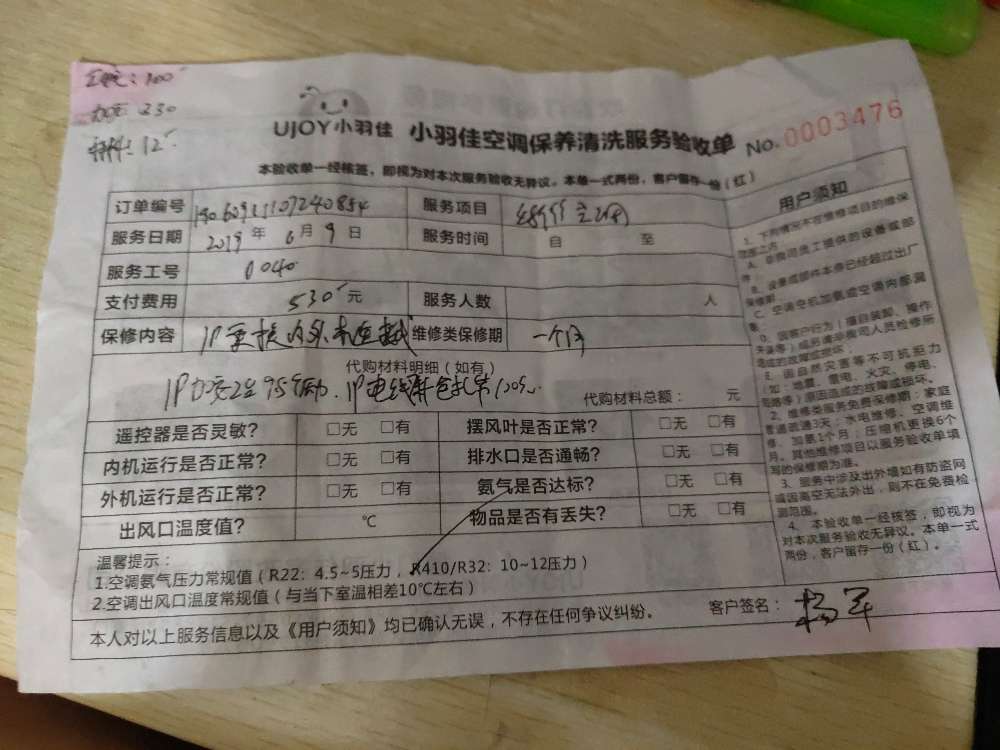 100
230
UJOY小羽佳 小羽佳空调保养清洗服务验收单 No.0003476
本验收单一经核签，即视为对本次服务验收无异议。本单一式两份，客户留存一份（红）
订单编号 服务项目
服务日期 2019年6月9日 服务时间 自 至
服务工号 0040
支付费用 530元 服务人数 人
保修内容 维修类保修期 一个月
代购材料明细（如有）
代购材料总额： 元
遥控器是否灵敏？ □无 □有 摆风叶是否正常？ □无 □有
内机运行是否正常？ □无 □有 排水口是否通畅？ □无 □有
外机运行是否正常？ □无 □有 氨气是否达标？ □无 □有
出风口温度值？ ℃ 物品是否有丢失？ □无 □有
温馨提示：
1.空调氨气压力常规值（R22：4.5~5压力，R410/R32：10~12压力）
2.空调出风口温度常规值（与当下室温相差10℃左右）
本人对以上服务信息以及《用户须知》均已确认无误，不存在任何争议纠纷。
客户签名：
用户须知
1、下列情况不在维修项目的维保
范围之内：
A、非我司员工提供的设备或部
件；
B、设备或部件本身已经超过出厂
保修期；
C、空调空机加氨或空调内部漏
氨；
D、因客户行为（擅自装卸、操作
失误等）或另请非我司人员检修所
造成的故障或损坏；
E、因自然灾害等不可抗拒力
（如：地震、雷电、火灾、停电、
短路等）原因造成的故障或损坏。
2、维修类服务免费保修期：家庭
普通疏通3天；水电维修、空调维
修、加氨1个月；压缩机更换6个
月。其他维修项目以服务验收单填
写的保修期为准。
3、服务中涉及出外墙如有防盗网
或因高空无法外出，则不在免费检
测范围。
4、本验收单一经核签，即视为
对本次服务验收无异议。本单一式
两份，客户留存一份（红）。